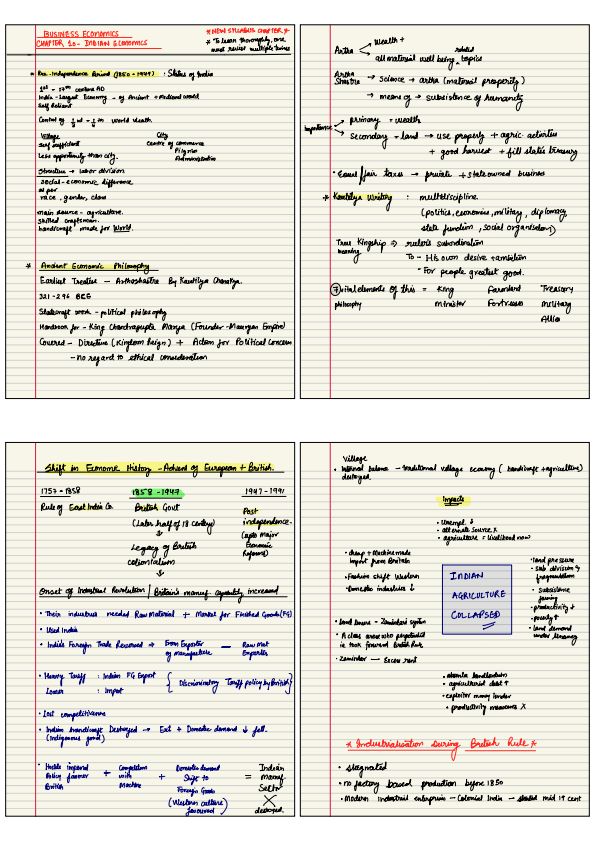 BUSINESS ECONOMICS
CHAPTER 10 - INDIAN ECONOMICS
* NEW SYLLABUS CHAPTER *
* To learn thoroughly, one must revise multiple times
* Pre-Independence Period (1850-1947) : Status of India
1st - 17th century AD
India - Largest Economy - of Ancient + Medieval world
Self Reliant
Control of 1/3 rd - 1/4 th World Wealth
Village
Self sufficient
Less opportunity than city.
City
Centre of commerce
Pilgrims
Administration
Structure → labor division
Social-economic difference
as per
race, gender, class
main source - agriculture.
skilled craftsman.
handicraft made for World.
* Ancient Economic Philosophy
Earliest Treatise - Arthashastra By Kautilya Chanakya.
321-296 BCE
Statecraft work - political philosophy
Handbook for - King Chandragupta Maurya (Founder - Mauryan Empire)
Covered - Directive (Kingdom Reign) + Action for Political Concern
- no regard to ethical consideration
Artha → Wealth +
all material well being related topics
Artha Shastra → Science → artha (material prosperity)
→ means of → subsistence of humanity
Importance → primary = wealth
→ Secondary = land → use properly + agric activities
+ good harvest + fill state's treasury
• Equal/fair taxes → private + state owned business
* Kautilya Writing : multidiscipline
(politics, economics, military, diplomacy,
state function, social organisation)
True Kingship ⇒ ruler's subordination
meaning
To - His own desire + ambition
"For people greatest good.
⑦ vital elements of this = King Farmland Treasury
philosophy minister Fortresses Military
Allies
Shift in Economic History - Advent of European + British.
1757 - 1858
Rule of East India Co.
1858 - 1947
British Govt
(Later half of 18 century)
↓
Legacy of British
colonialism
1947 - 1991
Post
independence.
(upto Major
Economic
Reforms)
Onset of Industrial Revolution / Britain's manuf. capability increased
• Their industries needed Raw Material + Market for Finished Goods (FG)
• Used India
• India's Foreign Trade Reversed → From Exporter of manufacture - Raw Mat Exporter
• Heavy Tariff : Indian FG Export
Lower : Import
{ Discriminatory Tariff policy by British }
• Lost competitiveness
• Indian handicraft Destroyed → Ext + Domestic demand ↓ fell.
(Indigenous good)
• Hostile imperial Policy favour British + Competition with Machine + Domestic demand Shift to Foreign Goods (Western culture favoured) = Indian manuf. Sector X destroyed.
Village
• Internal balance - traditional village economy (handicraft + agriculture)
destroyed.
Impacts
• Unempl. ↓
• alternate source X
• agriculture = livelihood now
• cheap + Machinemade
import from Britain
• Fashion shift Western
• Domestic industries ↓
INDIAN
AGRICULTURE
COLLAPSED
• land pressure
• Sub division & fragmentation
• Subsistence farming
• productivity ↓
• poverty ↑
• land demand
• land tenure - Zamindari System
• A class arose who perpetuated
ie took forward British Rule
• Zamindar - Excess rent
• absentee landlordism
• agricultural debt ↑
• exploiter money lender
• productivity measures X
* Industrialisation During British Rule *
• stagnated
• no factory based production before 1850
• Modern industrial enterprises - Colonial India - started mid 19 cent